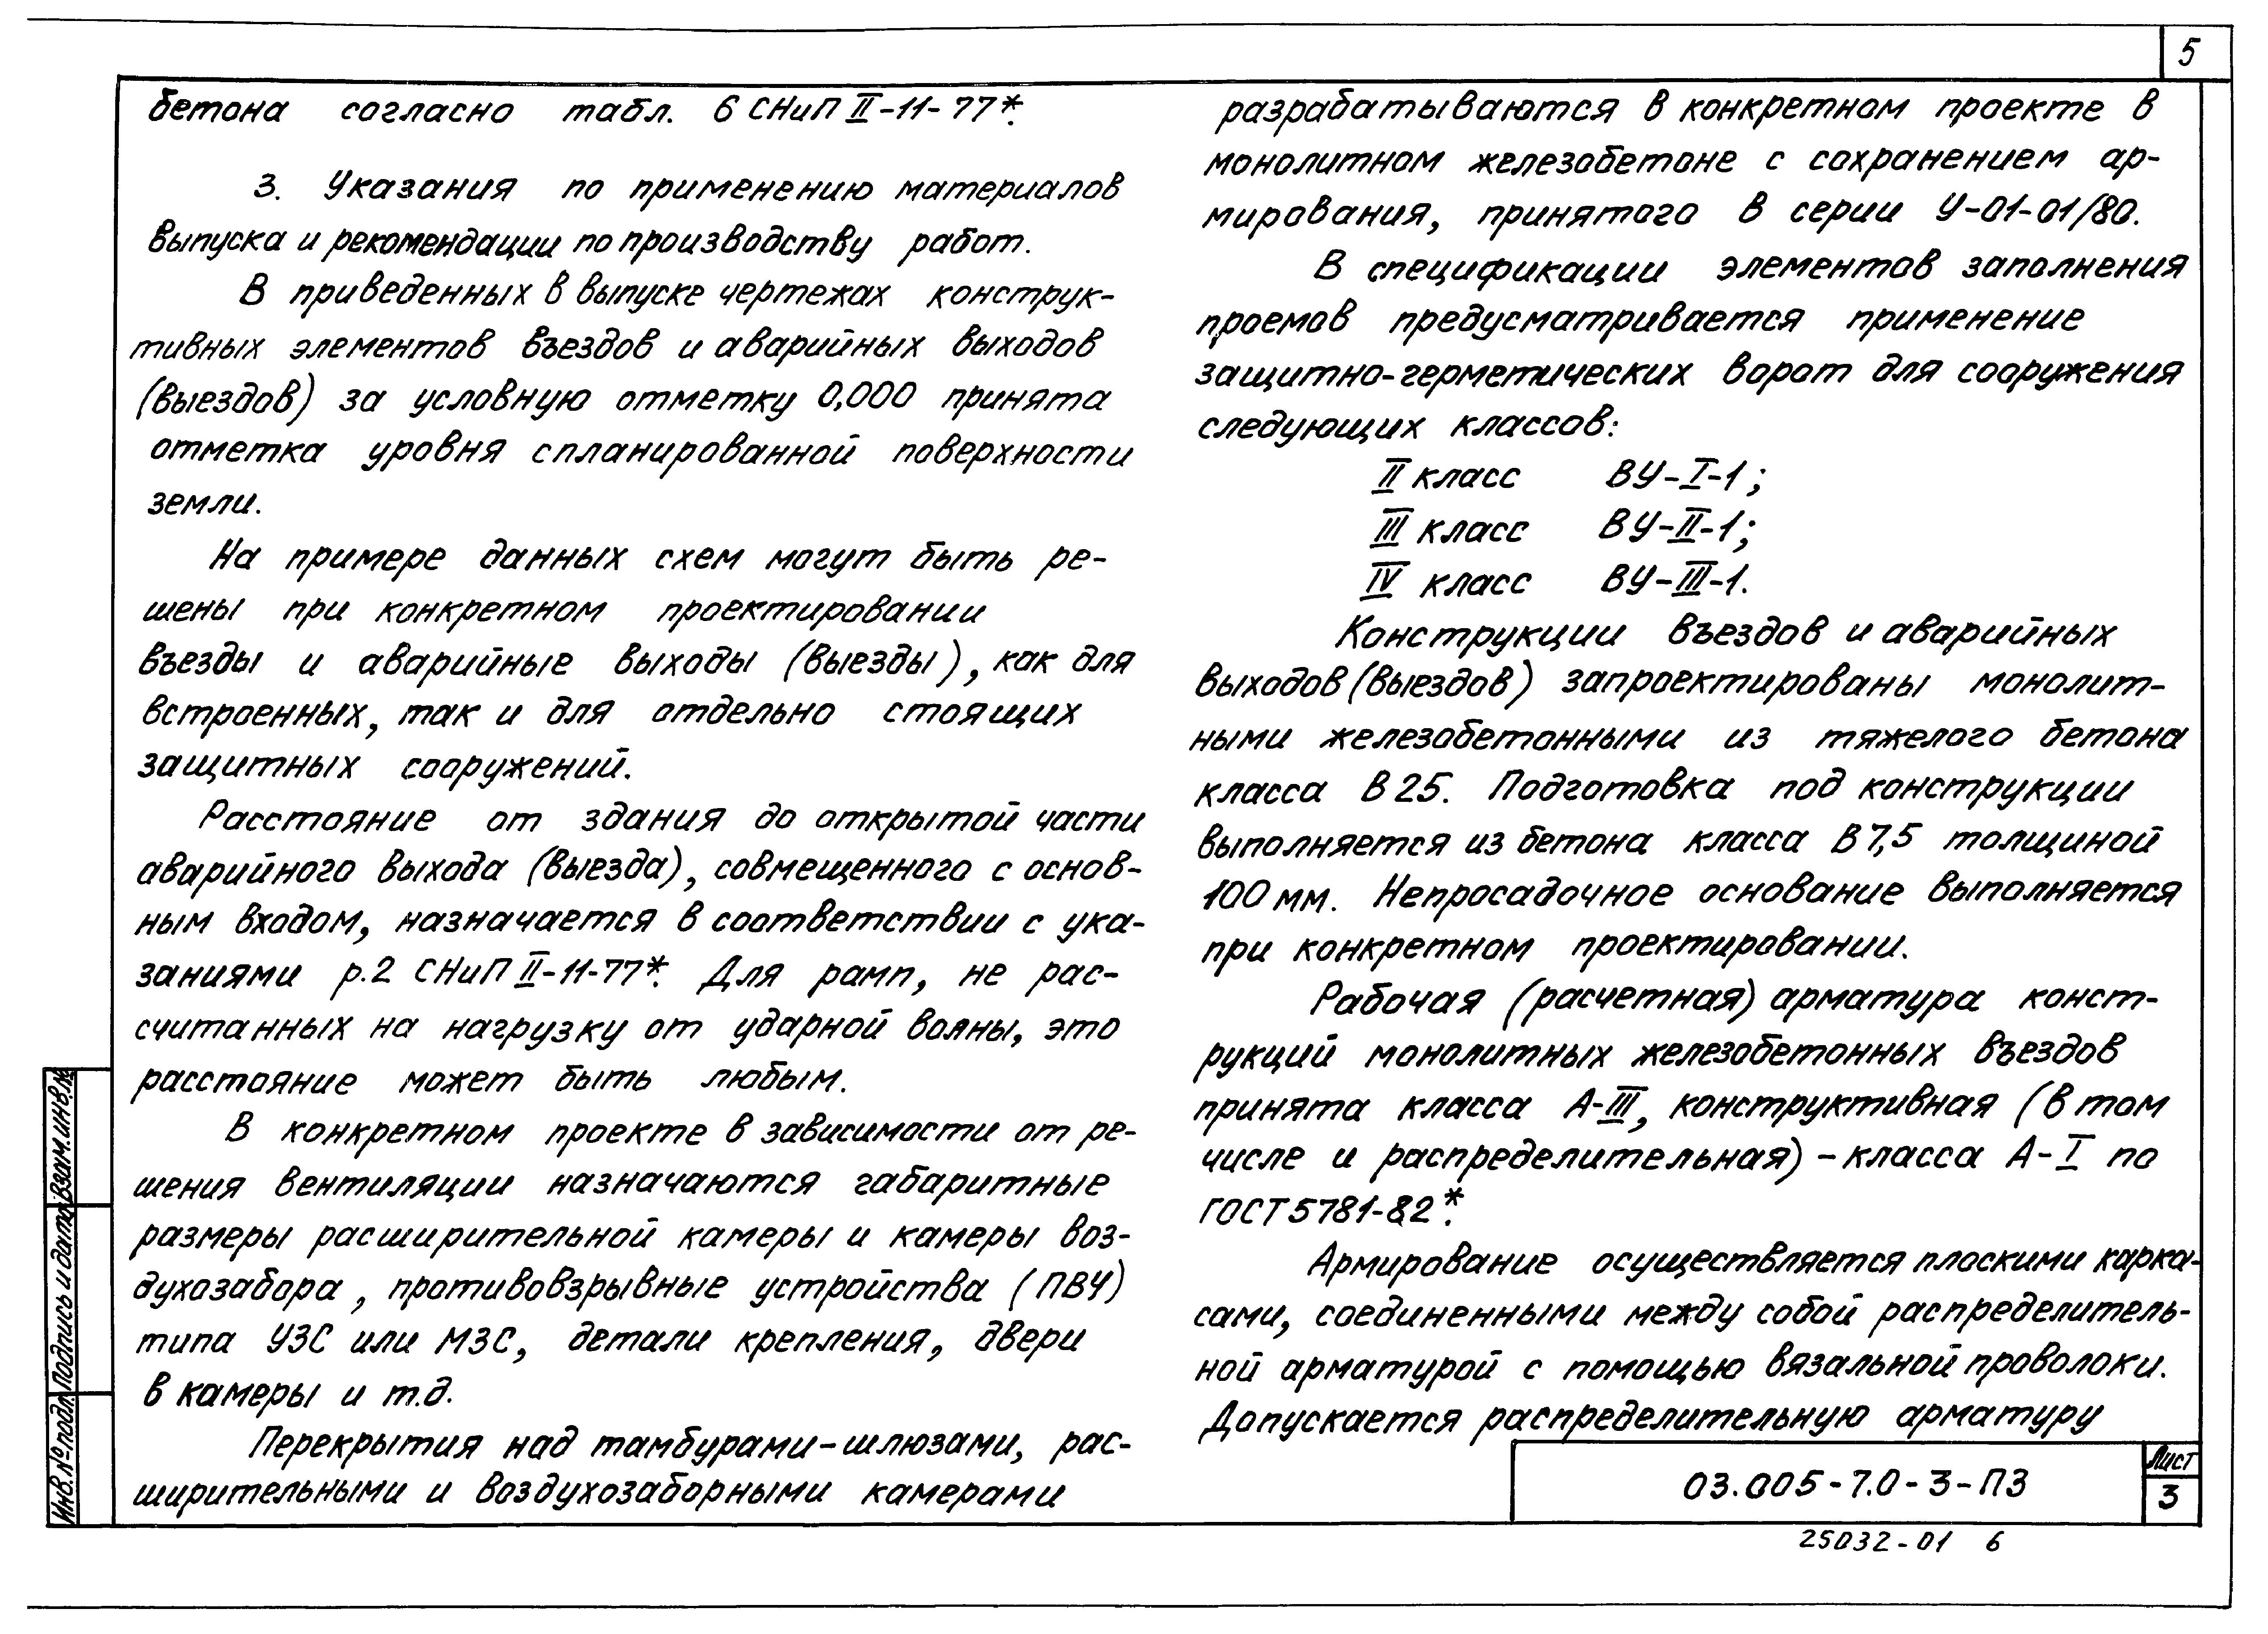 5
бетона согласно табл. 6 СНиП II-11-77*.
3. Указания по применению материалов
выпуска и рекомендации по производству работ.
В приведенных в выпуске чертежах конструк-
тивных элементов въездов и аварийных выходов
(выездов) за условную отметку 0,000 принята
отметка уровня спланированной поверхности
земли.
На примере данных схем могут быть ре-
шены при конкретном проектировании
въезды и аварийные выходы (выезды), как для
встроенных, так и для отдельно стоящих
защитных сооружений.
Расстояние от здания до открытой части
аварийного выхода (выезда), совмещенного с основ-
ным входом, назначается в соответствии с ука-
заниями р.2 СНиП II-11-77*. Для рамп, не рас-
считанных на нагрузку от ударной волны, это
расстояние может быть любым.
В конкретном проекте в зависимости от ре-
шения вентиляции назначаются габаритные
размеры расширительной камеры и камеры воз-
духозабора, противовзрывные устройства (ПВУ)
типа УЗС или МЗС, детали крепления, двери
в камеры и т.д.
Перекрытия над тамбурами-шлюзами, рас-
ширительными и воздухозаборными камерами
разрабатываются в конкретном проекте в
монолитном железобетоне с сохранением ар-
мирования, принятого в серии У-01-01/80.
В спецификации элементов заполнения
проемов предусматривается применение
защитно-герметических ворот для сооружения
следующих классов:
II класс ВУ-I-1;
III класс ВУ-II-1;
IV класс ВУ-III-1.
Конструкции въездов и аварийных
выходов (выездов) запроектированы монолит-
ными железобетонными из тяжелого бетона
класса В25. Подготовка под конструкции
выполняется из бетона класса В7,5 толщиной
100 мм. Непросадочное основание выполняется
при конкретном проектировании.
Рабочая (расчетная) арматура конст-
рукций монолитных железобетонных въездов
принята класса А-III, конструктивная (в том
числе и распределительная) - класса А-I по
ГОСТ 5781-82*.
Армирование осуществляется плоскими карка-
сами, соединенными между собой распределитель-
ной арматурой с помощью вязальной проволоки.
Допускается распределительную арматуру
Инв.№подл.
Подпись и дата
Взам.инв.№
03.005-7.0-3-ПЗ
Лист
3
25032-01 6